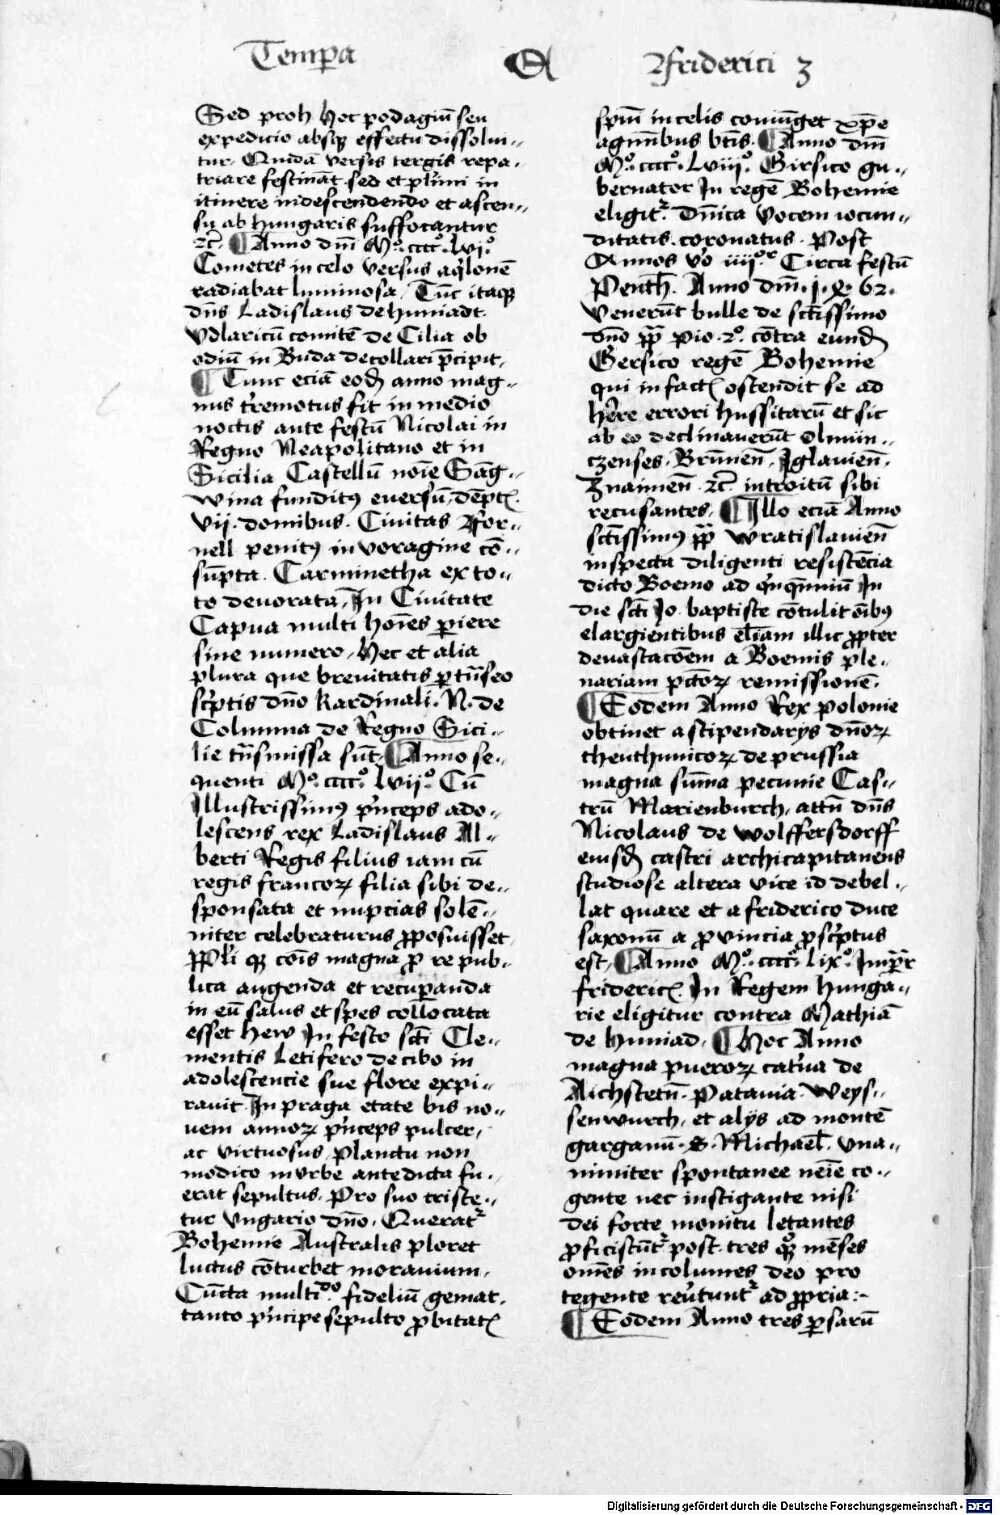 Temp̲a A Friderici 3
Sed proh hoc podagiū seu
expedicio absq̄ effectu dissolui⸗
tur. Quidā versis tergis repa⸗
triare festināt sed et plu̅imi in
itinere in descendendo et ascen⸗
su ab hungaris suffocantur
ꝛc̄. ¶ Anno dn̄i Mº.ccccº.lviº.
Cometes in celo versus aq̇lonē
radiabat luminosa. Tūc itaqꝫ
dn̄s Ladislaus de huniadt.
Vdlaricū comitē de Cilia ob
odiū in Buda decollari p̄cipit.
¶ Tunc eciā eod̄ anno mag⸗
nus t̓remotus fit in medio
noctis ante festū Nicolai in
Regno Neapolitano et in
Sicilia Castellū noīe Sāg⸗
wina funditꝰ euersū dēptꝭ
vij. domibus. Ciuitas For⸗
nell penitꝰ in voragine cō⸗
sūpta. Carminetha ex to⸗
to deuorata, In Ciuitate
Capua multi hoīes p̲iere
sine numero, Hec et alia
plura que breuitatis p̲tn̄seo
sc̓ptis dn̄o kardinali. N. de
Columna de Regno Sici⸗
lie tn̄smissa sūt. ¶ Anno se⸗
quenti Mº.ccccº.lvijº. Cū
Illustrissimꝰ p̓nceps ado⸗
lescens rex Ladislaus Al⸗
berti Regis filius iam cū
regis francoꝝ filia sibi de⸗
sponsata et nupcias solē⸗
niter celebraturus ꝓposuisset
ppl̓i qꝫ cōis magna ꝓ re pub⸗
lica augenda et recup̲anda
in eū salus et spes collocata
esset hew In festo sc̄ti Cle⸗
mentis Letifero de cibo in
adolescencie sue flore expi⸗
rauit. In praga etate bis no⸗
uem annoꝝ p̓nceps pulcer,
ac virtuosus, planctu non
modico in vrbe antedicta fu⸗
erat sepultus. Pro suo triste⸗
tur vngario dn̄o. Querat᷑
Bohemie Australis ploret
luctus cōturbet morauium,
Cūcta multidº fideliū gemat.
tanto p̓ncipe sepulto ꝓbitatꝭ
sp̄ui in celis coniūget xp̄e
agminibus btīs. ¶ Anno dn̄i
Mº.ccccº.Lviijº. Girsico gu⸗
bernator In regē Bohemie
eligit᷑. Dn̄ica vocem iocun⸗
ditatis. coronatus. Post
Annos vo iiijºʳ Circa festū
Penth̄. Anno dn̄i. 1. 4. 62.
venerūt bulle de sctīssimo
dn̄o pp̄ pio. 2º. cōtra eund̄
Gersico regē Bohemie
qui in factꝭ ostendit se ad
h̓ere errori hussitarū et sic
ab eo declinauerūt Olmūn⸗
czenses. Brūnen̄. Iglauien̄.
Znaimen̄. ꝛc̄. introitū sibi
recusantes. ¶ Illo eciā Anno
sctīssimꝰ pp̄ wratislauien̄
inspecta diligenti resistēcia
dicto Boemo ad q̓nq̄nniū In
die sc̄ti Jo. baptiste cōtulit oībꝰ
elargientibus el̄iam illic ꝓpter
deuastacōem a Boemis ple⸗
nariam pctōꝝ remissionē.
¶ Eodem Anno Rex polonie
obtinet a stipendarijs dn̄oꝝ
theuthunicoꝝ de prussia
magna sūma pecunie Cas⸗
trū Marienburch, attn̄ dn̄s
Nicolaus de wolffersdorff
eiusd̄ castri archicapitanens
studiose altera vice id debel⸗
lat quare et a friderico duce
saxonū a ꝓvincia ꝓsc̓ptus
est. ¶ Anno Mº.ccccº.lixº. Imp̲r
fridericꝭ. In Regem hunga⸗
rie eligitur contra Mathiā
de huniad. ¶ Hoc Anno
magna pueroꝝ cat̓ua de
Aichstetn̄. Patauia. Weys⸗
senwurch, et alijs ad montē
garganū. S. Michael̄. vna⸗
nimiter spontanee neīe co⸗
gente nec instigante nisi
dei forte monitu letantes
ꝓficiscūt᷑ post tres qͦꝫ mēses
omēs incolumes deo pro
tegente reu̓tunt᷑ ad ꝓpria:⸗
¶ Eodem Anno tres p̲sarū
Digitalisierung gefördert durch die Deutsche Forschungsgemeinschaft - DFG